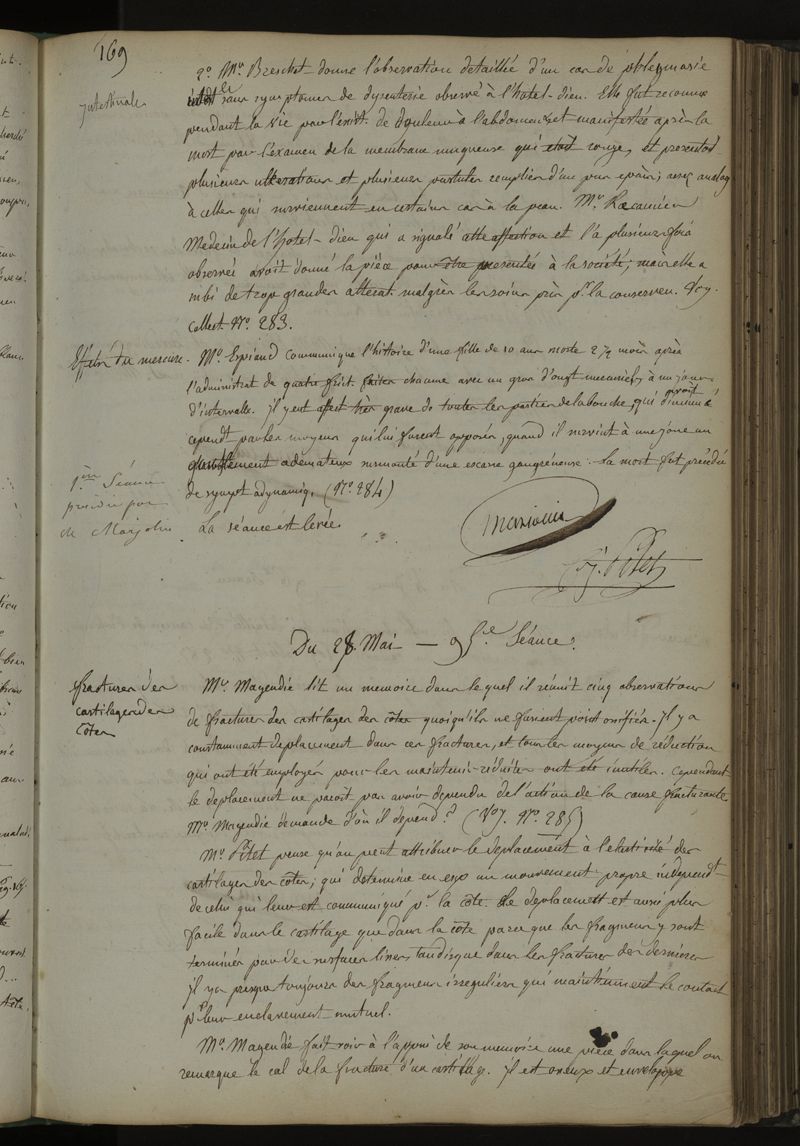 169
2°. Mr. Breschet donne l'observation detaillée d'un cas de phlegmasie
intestinale
sans symptomes de dysenterie observé à l'hotel-dieu. Elle fut reconnue
pendant la vie par l'exist. de douleurs à l'abdomen et manifestée après la
mort par l'examen de la membrane muqueuse qui etait rouge, et presentait
plusieurs ulcerations et plusieurs pustules remplies d'un pus epais; assez analog
à celles qui surviennent en certains cas à la peau. Mr. Recamier
Medecin de l'hotel-dieu qui a signalé cette affection et l'a plusieurs fois
observée avoit donné la pièce pour être presentée à la société; mais elle a
subi de trop grandes alterat. malgrès les soins pris pr. la conserver. Voy.
collect. No. 283.
Effets du mercure.
Mr. Espiaud communique l'histoire d'une fille de 10 ans morte 2 1/2 mois après
l'administrat. de quatre frict. faites chacune avec un gros d'ongt mercuriel, à un jour
d'intervalle. Il y eut affect. très grave de toutes les parties de la bouche, qui avoit diminué
cependt par les moyens qui lui furent opposés, quand il survint à une joue un
gonflement ademateux surmonté d'une escarre gangréneuse. La mort fut précédée
de sympt. adynamiq. (No. 284)
1ère Séance
présidée par
de Marjolin
La séance est levée.
Marjolin
Du 28 Mai — 95e. Séance.
fractures des
cartilages des
côtes
Mr. Magendie lit un memoire dans lequel il réunit cinq observations
de fractures des cartilages des côtes quoiqu'ils ne fussent point ossifiés. Il y a
constamment deplacement dans ces fractures, et tous les moyens de réduction
qui ont été employés pour les maintenir réduites ont été inutiles. Cependant
le deplacement ne paroit pas avoir dependu de l'action de la cause fracturante
Mr. Magendie demande d'où il depend? (Voy. No. 285)
Mr. Pétet pense qu'on peut attribuer le deplacement à l'elasticité des
cartilages des côtes; qui determine en eux un mouvement propre independt
de celui qui leur est communiqué pr. la côte. Le deplacement est aussi plus
facile dans le cartilage que dans la côte parce que les fragmens y sont
terminés par des surfaces lisses tandisque dans les fractures des dernieres
il y a presque toujours des fragmens irreguliers qui maintiennent le contact
pr leur enclavement mutuel.
Mr. Magendie fait voir à l'appui de son memoire une pièce dans laquel on
remarque le cal de la fracture d'un cartilage. Il est osseux et enveloppe